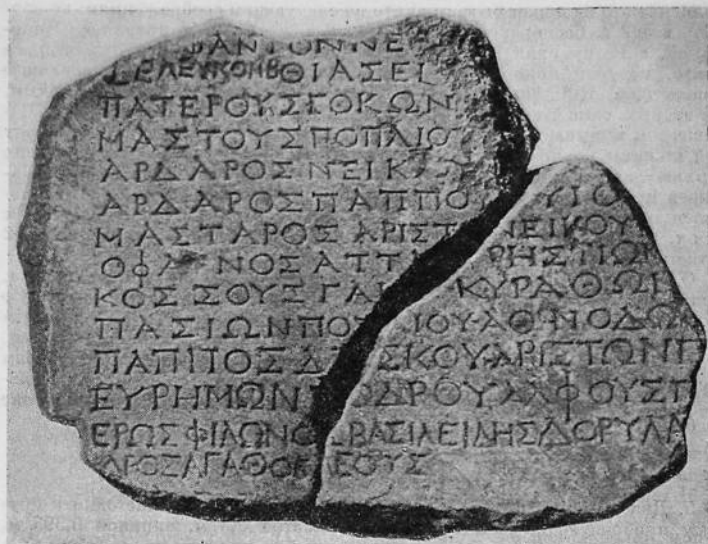 ΦΑΝΤΩΝΝΕ
ΣΕΛΕΥΚΟΜΒΘΙΑΣΕΙ
ΠΑΤΕΡΟΥΣΓΟΚΩΝ
ΜΑΣΤΟΥΣΠΟΠΛΙΟ
ΑΡΔΑΡΟΣΝΕΙΚ
ΑΡΔΑΡΟΣΠΑΠΠΟ ΥΙΟ
ΜΑΣΤΑΡΟΣΑΡΙΣΤ ΝΕΙΚΟΥ
ΟΦΑΡΝΟΣΑΤΤΑ ΡΗΣΤΙΩΝ
ΚΟΣΣΟΥΣΓΑ ΚΥΡΑΘΩΝ
ΠΑΣΙΩΝΠΟΣ ΙΟΥΑΘΗΝΟΔΩ
ΠΑΠΠΟΣΔ ΣΚΟΥΑΡΙΣΤΩΝΠ
ΕΥΡΗΜΩΝ ΟΔΡΟΥΑΛΦΟΥΣΠ
ΕΡΩΣΦΙΛΩΝΟΣΒΑΣΙΛΕΙΔΗΣΔΟΡΥΛΑ
ΔΡΟΣΑΓΑΘΟΚΛΕΟΥΣ